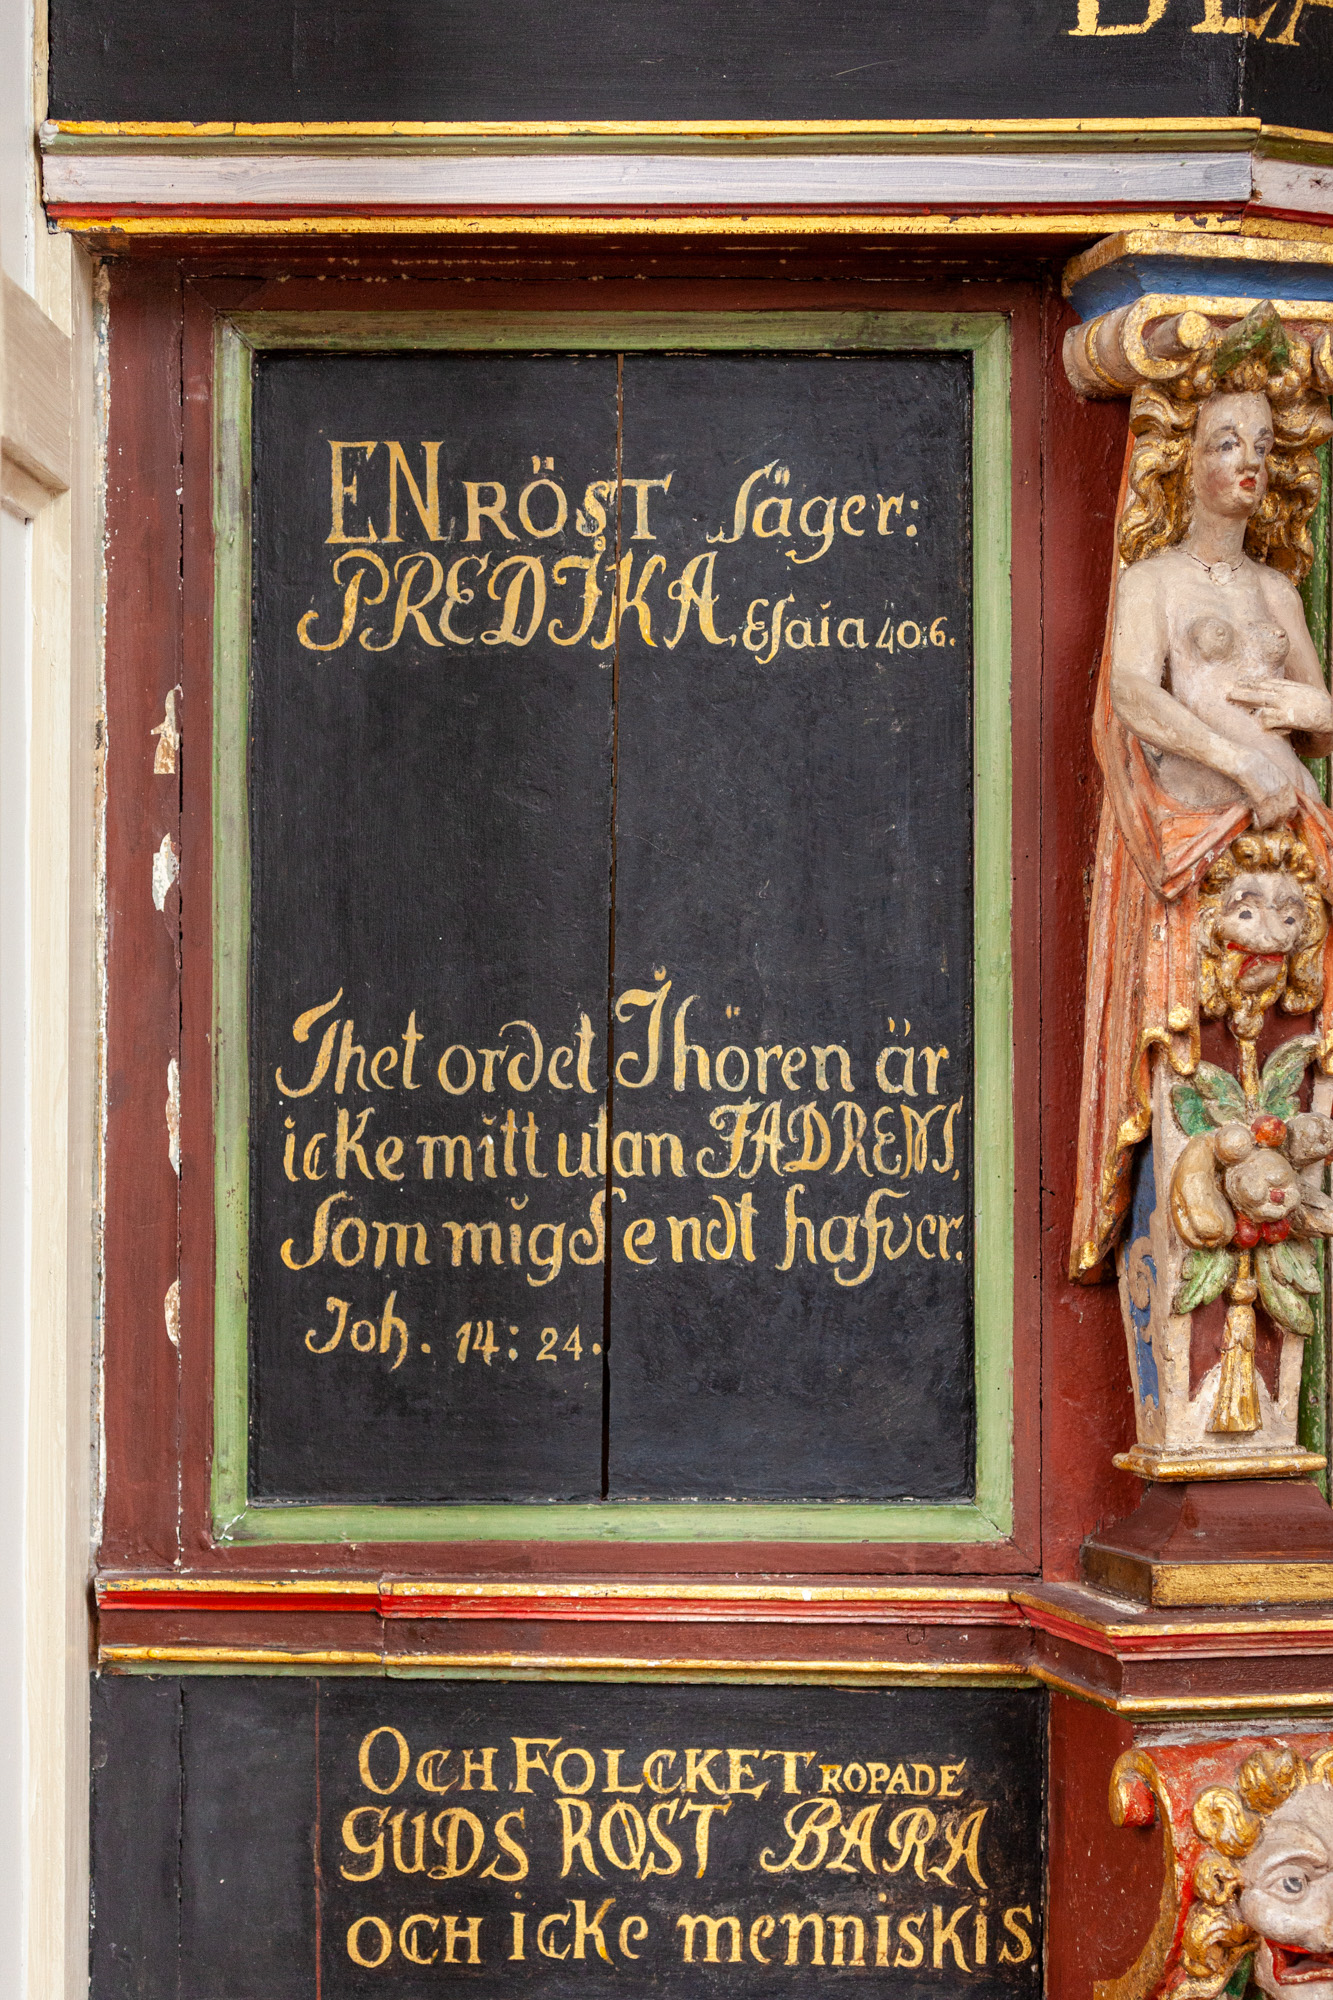 EN RÖST säger:
PREDIKA Esaia 40:6.
Thet ordet I hören är
icke mitt utan FADRENS,
som mig sendt hafver.
Joh. 14: 24.
OCH FOLCKET ROPADE
GUDS RØST BARA
OCH icke menniskiS